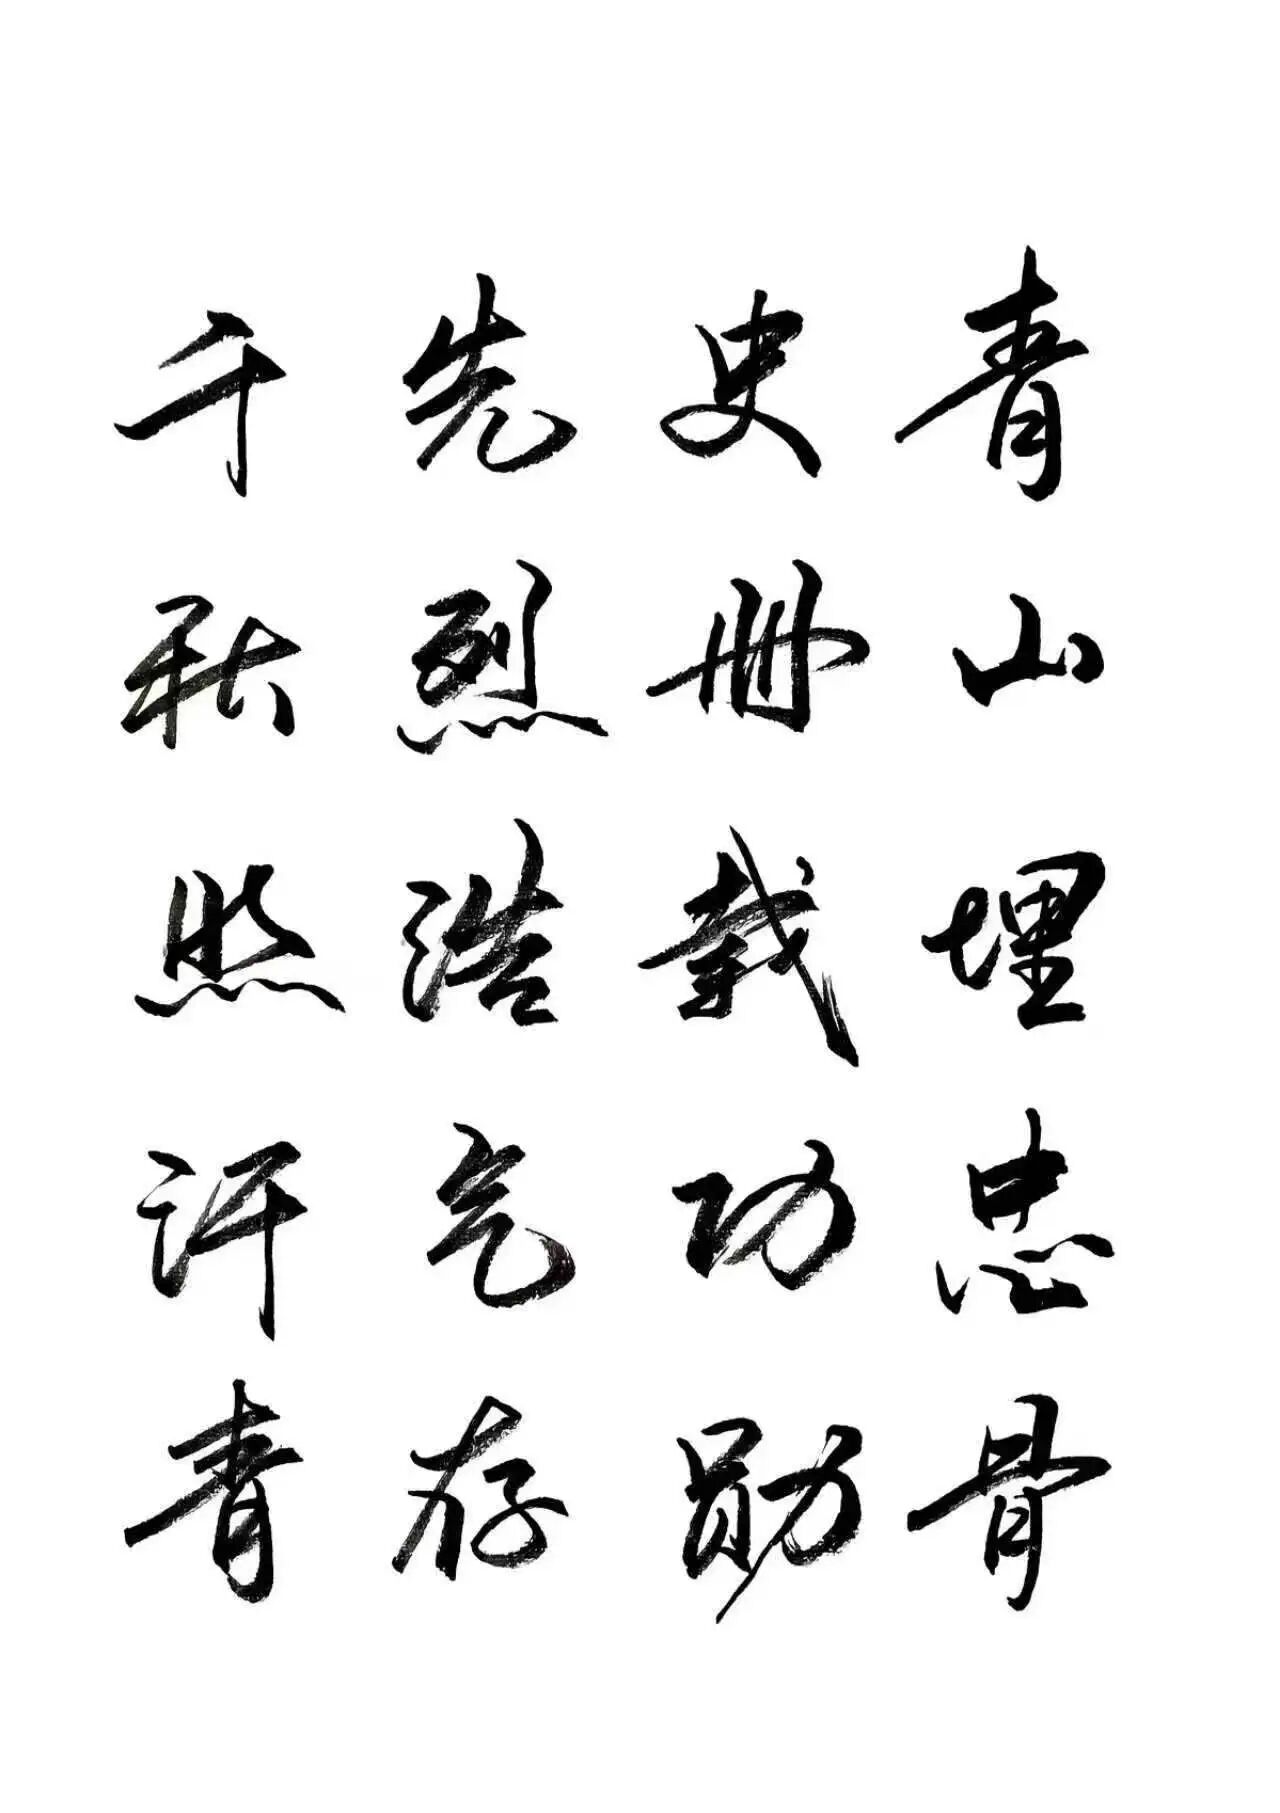 青山埋忠骨
史册载功勋
先烈浩气存
千秋照汗青